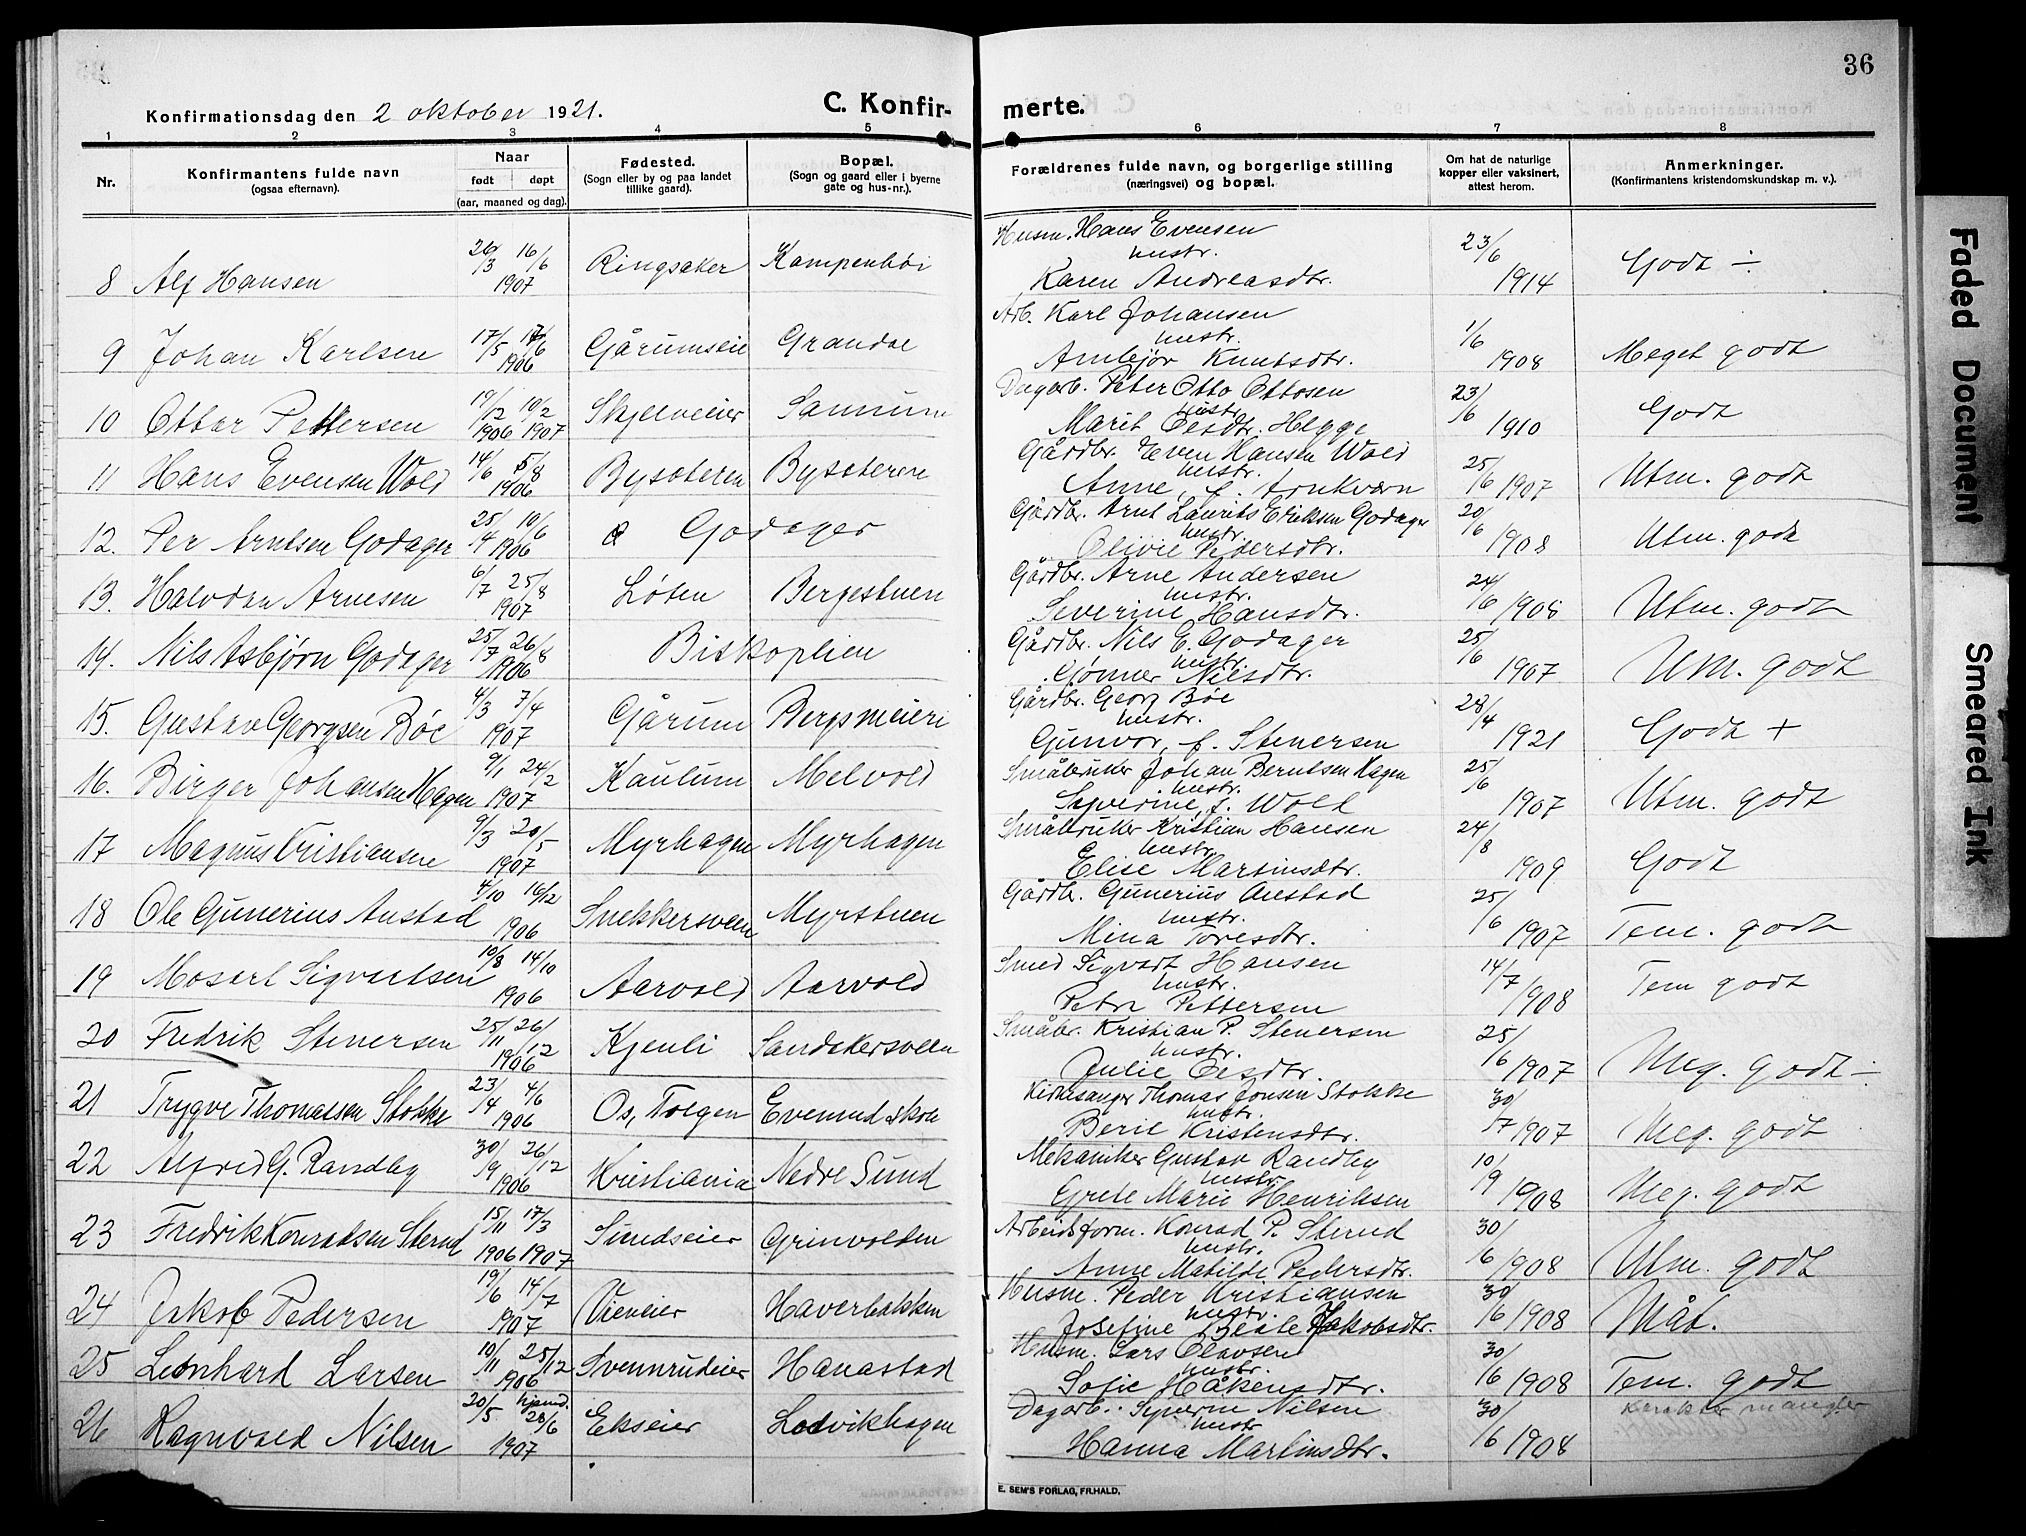 36
Konfirmationsdag den 2 oktober 1921.
C. Konfir-
merte.
1 2 3 4 5 6 7 8
Nr.
Konfirmantens fulde navn
(ogsaa efternavn).
Naar
født døpt
(aar, maaned og dag).
Fødested.
(Sogn eller by og paa landet
tillike gaard).
Bopæl.
(Sogn og gaard eller i byerne
gate og hus-nr.).
Forældrenes fulde navn, og borgerlige stilling
(næringsvei) og bopæl.
Om hat de naturlige
kopper eller vaksinert,
attest herom.
Anmerkninger.
(Konfirmantens kristendomskundskap m. v.).
8 Alf Hansen 26/3 16/6 1907 Ringsaker Kampenhøi
Husm. Hans Evensen
hustr.
Karen Andreasdtr. 23/6 1914 Godt ÷
9 Johan Karlsen 17/5 17/6 1906 Gårumseie Grandae
Arb. Karl Johansen
hustr.
Ambjør Knutsdtr. 1/6 1908 Meget godt
10 Ottar Pettersen 19/12 1906 10/2 1907 Skjelveier Sannum
Dagarb. Peter Otto Ottosen
hustr.
Marit Olsdtr. Hegge 23/6 1910 Godt
11 Hans Evensen Wold 14/6 5/8 1906 Bysæteren Bysæteren
Gårdbr. Even Hansen Wold
hustr.
Anne, f. Arnkværn 25/6 1907 Utm. godt
12. Per Arntsen Godager 25/4 10/6 1906 Godager
Gårdbr. Arnt Laurits Eriksen Godager
hustr.
Olivie Pedersdtr. 20/6 1908 Utm. godt
13. Halvdan Arnesen 6/7 25/8 1907 Løten Bergestuen
Gårdbr. Arne Andersen
hustr.
Severine Hansdtr. 24/6 1908 Utm. godt
14. Nils Asbjørn Godager 25/7 26/8 1906 Biskoplien
Gårdbr. Nils E. Godager
hustr.
Gønner Nilsdtr. 25/6 1907 Utm. godt
15. Gustav Georgsen Bøe 4/3 7/4 1907 Gårum Bergsmeieri
Gårdbr. Georg Bøe
hustr.
Gunvor, f. Stenersen 28/4 1921 Godt +
16. Birger Johansen Hagen 9/1 24/2 1907 Kaulum Melvold
Småbruker Johan Berntsen Hagen
hustr.
Syverine, f. Wold 25/6 1907 Utm. godt
17 Magnus Kristiansen 9/3 20/5 1907 Myrhagen Myrhagen
Småbruker Kristian Hansen
hustr.
Elise Martinsdtr. 24/8 1909 Godt
18 Ole Gunerius Anstad 4/10 16/12 1906 Snekkersveen Myrstuen
Gårdbr. Gunerius Anstad
hustr.
Mina Toresdtr. 25/6 1907 Tem. godt
19 Mosart Sigvartsen 10/8 14/10 1906 Aarvold Aarvold
Smed Sigvart Hansen
hustr.
Petra Pettersen 14/7 1908 Tem godt
20 Fredrik Stenersen 25/11 26/12 1906 Kjenli Sandakersveen
Småbr. Kristian P. Stenersen
hustr.
Julie Olsdtr. 25/6 1907 Meg. godt ÷
21 Trygve Thomassen Stokke 23/4 4/6 1906 Os, Tolgen Evenrud skole
Kirkesanger Thomas Jonsen Stokke
hustr.
Berit Kristensdtr. 30/7 1907 Meg. godt
22 Alfred G. Randby 30/9 26/12 1906 Kristiania Nedre Sund
Mekaniker Gustav Randby
hustr.
Grete Marie Henriksen 10/9 1908 Meg. godt
23 Fredrik Konradsen Sterud 15/11 1906 17/3 1907 Sundseier Grinvolden
Arbeidsform. Konrad P. Sterud
hustr.
Anne Matilde Pedersdtr. 30/6 1908 Utm. godt
24 Jakob Pedersen 19/6 14/7 1907 Vieneier Haverbakken
Husm. Peder Kristiansen
hustr.
Josefine Beate Jakobsdtr. 30/6 1908 Måt.
25 Leonhard Larsen 19/11 25/12 1906 Svennrudeier Hanastad
Husm. Lars Olavsen
hustr.
Sofie Håkensdtr. 30/6 1908 Tem. godt
26 Ragnvald Nilsen 20/5 hjemd. 28/6 1907 Ekseier Lodvikhagen
Dagarb. Syverin Nilsen
hustr.
Hanna Martinsdtr. 30/6 1908 Karakter mangler
E. SEM'S FORLAG, FR.HALD.
Faded Document
Smeared Ink